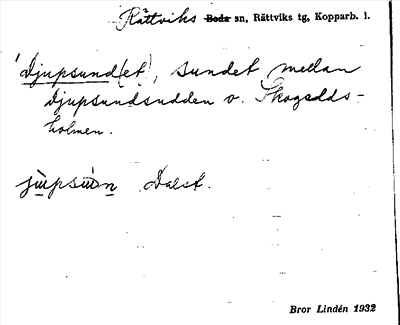 Rättviks Boda sn, Rättviks tg, Kopparb. l.
'Djupsund(et), sundet mellan
Djupsundsudden o. Skogsudds-
holmen.
jùpsùn Dalst.
Bror Lindén 1932